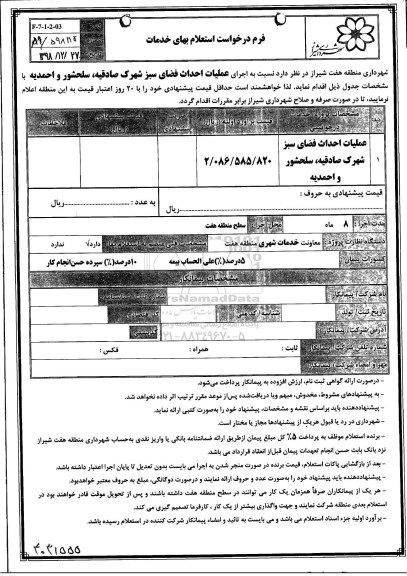 F-7-1-2-03
فرم درخواست استعلام بهای خدمات
شهرداری شیراز
۵۹/۵۹۸۱۲۴
۱۳۹۸/۱۲/۲۷
شهرداری منطقه هفت شیراز در نظر دارد نسبت به اجرای عملیات احداث فضای سبز شهرک صادقیه، سلحشور و احمدیه با
مشخصات جدول ذیل اقدام نماید. لذا خواهشمند است حداقل قیمت پیشنهادی خود را با ۲۰ روز اعتبار قیمت به این منطقه اعلام
فرمایید، تا در صورت صرفه و صلاح شهرداری شیراز برابر مقررات اقدام گردد.
۱
عملیات احداث فضای سبز
شهرک صادقیه، سلحشور
و احمدیه
۲/۰۸۶/۵۸۵/۸۲۰
قیمت پیشنهادی به حروف : ریال
به عدد : ریال
مدت اجرا : ۸ ماه
محل اجرا
سطح منطقه هفت
دستگاه نظارت پروژه :
معاونت خدمات شهری منطقه هفت
دارد√ ندارد
۵درصد(٪)علی الحساب بیمه
۱۰درصد(٪) سپرده حسن انجام کار
مشخصات پیمانکار
نام شرکت / پیمانکار
تاریخ ثبت / تولد
آدرس شرکت / پیمانکار
ثابت : همراه : فکس :
مهر و امضاء شرکت / پیمانکار
- درصورت ارائه گواهی ثبت نام، ارزش افزوده به پیمانکار پرداخت می‌شود.
- به پیشنهادهای مشروط، مخدوش، مبهم ویا دریافت‌شده پس‌از موعد مقرر ترتیب اثر داده نخواهد شد.
- پیشنهاددهنده باید براساس نقشه و مشخصات، پیشنهاد خود را به‌صورت کتبی ارائه نماید.
- شهرداری در رد یا قبول هریک از پیشنهادها مجاز یا مختار است.
- برنده استعلام موظف به پرداخت ۵٪ کل مبلغ پیمان ازطریق ارائه ضمانتنامه بانکی یا واریز نقدی به‌حساب شهرداری منطقه هفت شیراز
نزد بانک بابت حسن انجام تعهدات پیمان قبل‌از انعقاد قرارداد می باشد.
- بعد از بازگشایی پاکات استعلام، قیمت برنده در صورت منجر شدن به اجرا می بایست بدون تعدیل تا پایان اجرا اعتبار داشته باشد.
- پیشنهاددهنده باید پیشنهاد خود را به‌صورت عدد و حروف ارائه نمایند و درصورت دوگانگی، مبلغ به حروف معتبر خواهدبود.
- هر یک از پیمانکاران صرفاً همزمان یک کار می توانند در سطح منطقه هفت داشته باشند و پس از تحویل موقت قادر خواهند بود در
استعلام بعدی منطقه شرکت نمایند و جهت واگذاری بیشتر از یک کار ، کارفرما تصمیم گیری می کند.
- برآورد اولیه جزء اسناد استعلام می باشد و می بایست به تائید و امضاء پیمانکار شرکت کننده در استعلام رسیده باشد.
۳۰۳۱۵۵۵